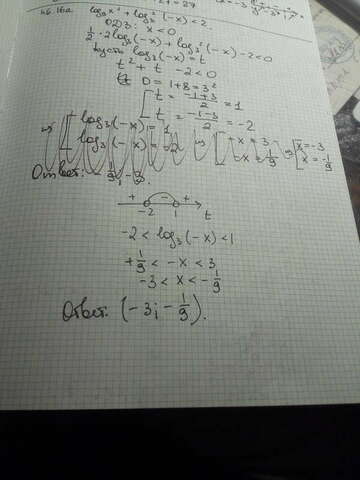 46.16а log₉x² + log₃²(-x) < 2
ОДЗ: x < 0
½·2log₃(-x) + log₃²(-x) - 2 < 0
Пусть log₃(-x) = t
t² + t - 2 < 0
D = 1 + 8 = 3²
[ t = (-1+3)/2 = 1
t = (-1-3)/2 = -2
=> [ log₃(-x) = 1
log₃(-x) = -2 => [ -x = 3
-x = 1/9 => [ x = -3
x = -1/9
Ответ:
+ - +
-2 1 t
-2 < log₃(-x) < 1
+1/9 < -x < 3
-3 < x < -1/9
Ответ: (-3; -1/9).